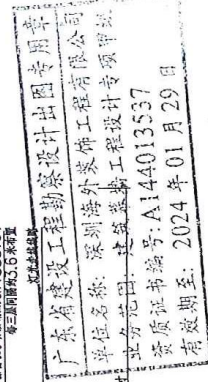 每三层间隔约3.6米布置
广东省建设工程勘察设计出图专用章
单位名称：深圳海外装饰工程有限公司
业务范围：建筑装饰工程设计专项甲级
资质证书编号：A144013537
有效期至：2024年01月29日